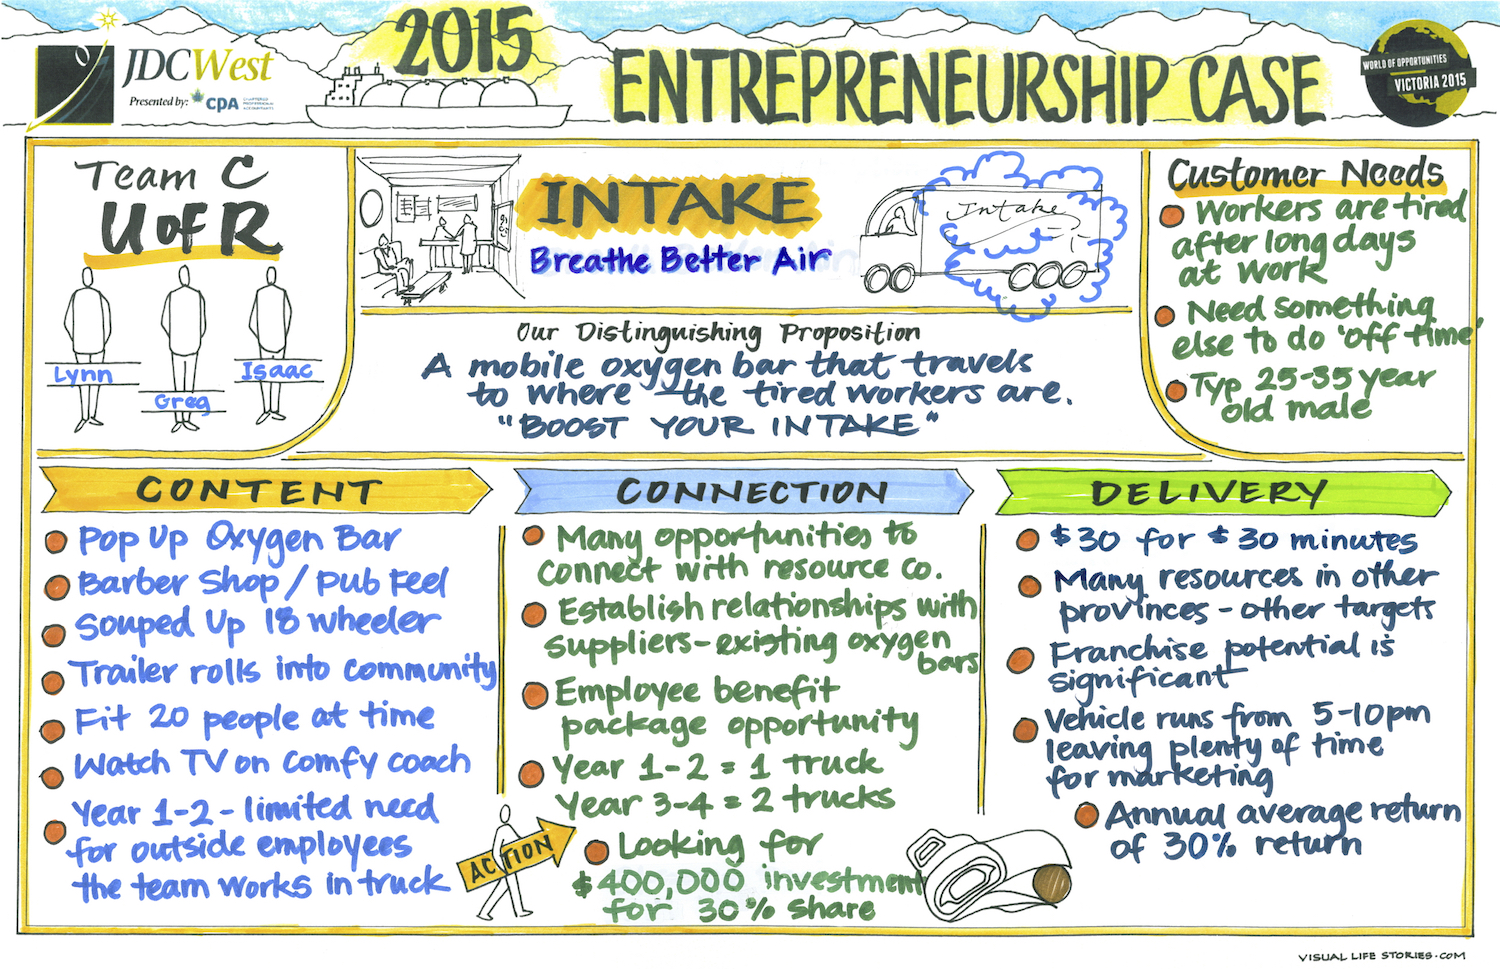 JDCWest
Presented by: CPA CHARTERED PROFESSIONAL ACCOUNTANTS
2015
ENTREPRENEURSHIP CASE
WORLD OF OPPORTUNITIES
VICTORIA 2015
Team C
U of R
Lynn
Greg
Isaac
INTAKE
Breathe Better Air
Intake
Our Distinguishing Proposition
A mobile oxygen bar that travels
to where the tired workers are.
"BOOST YOUR INTAKE"
Customer Needs
Workers are tired
after long days
at work
Need something
else to do 'off time'
Typ 25-35 year
old male
CONTENT
Pop Up Oxygen Bar
Barber Shop / Pub Feel
Souped Up 18 wheeler
Trailer rolls into community
Fit 20 people at time
Watch TV on comfy coach
Year 1-2 - limited need
for outside employees
the team works in truck
CONNECTION
Many opportunities to
connect with resource co.
Establish relationships with
suppliers - existing oxygen
bars
Employee benefit
package opportunity
Year 1-2 = 1 truck
Year 3-4 = 2 trucks
Looking for
$400,000 investment
for 30% share
ACTION
DELIVERY
$30 for $30 minutes
Many resources in other
provinces - other targets
Franchise potential is
significant
Vehicle runs from 5-10pm
leaving plenty of time
for marketing
Annual average return
of 30% return
VISUAL LIFE STORIES.COM